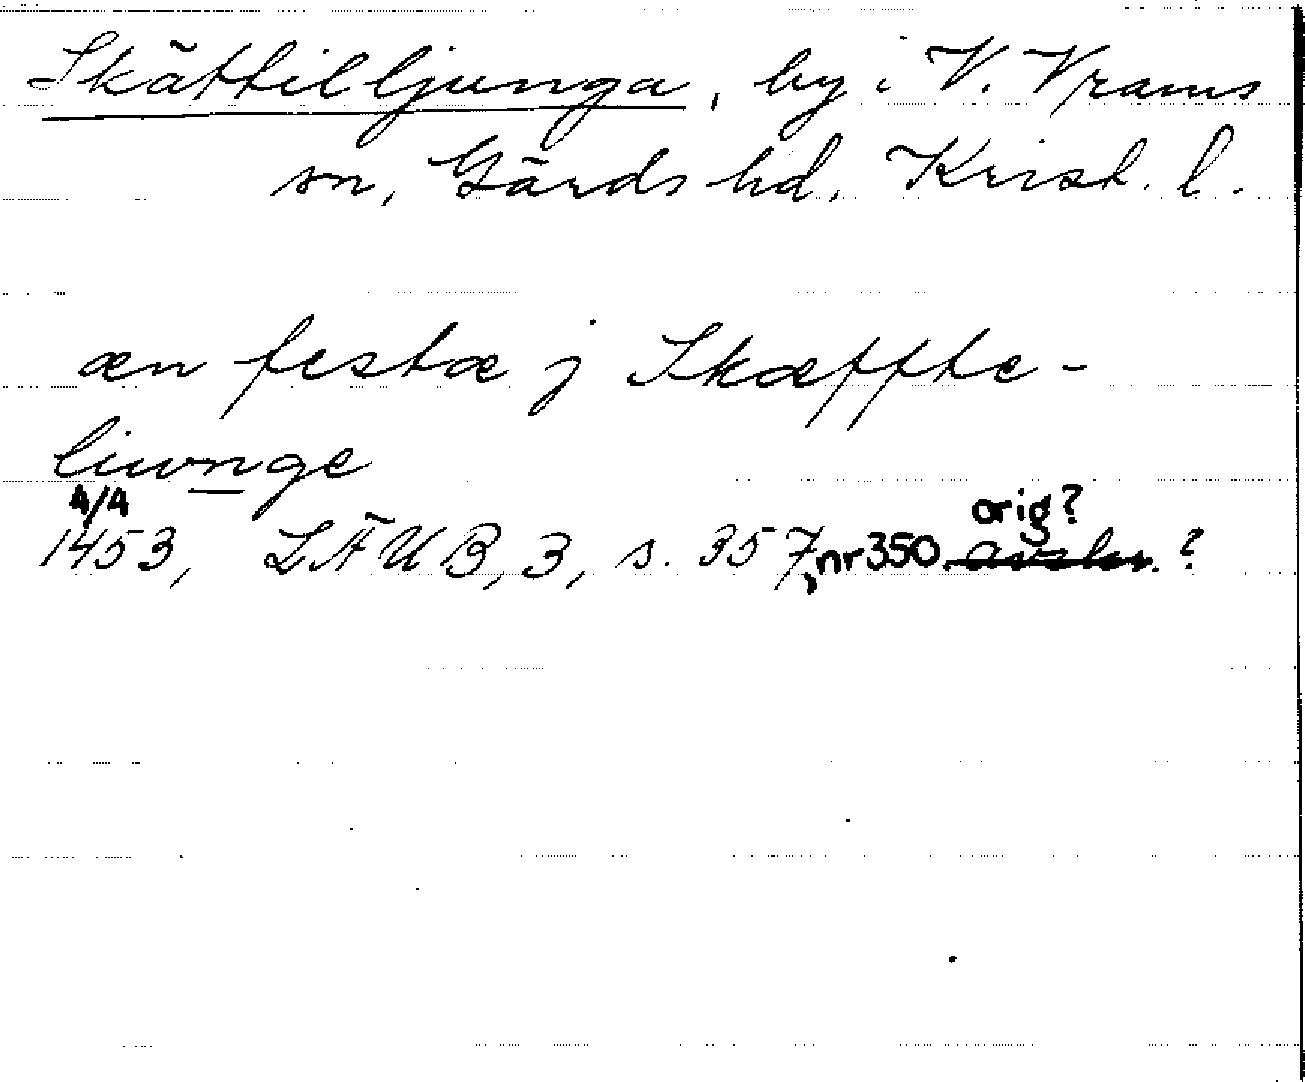 Skättilljunga, by i V. Vrams
sn, Gärds hd. Krist. l.
æn festæ j Skæffte-
liwnge
4/4
orig?
1453, LÄUB, 3, s. 357, nr 350. avskr. ?